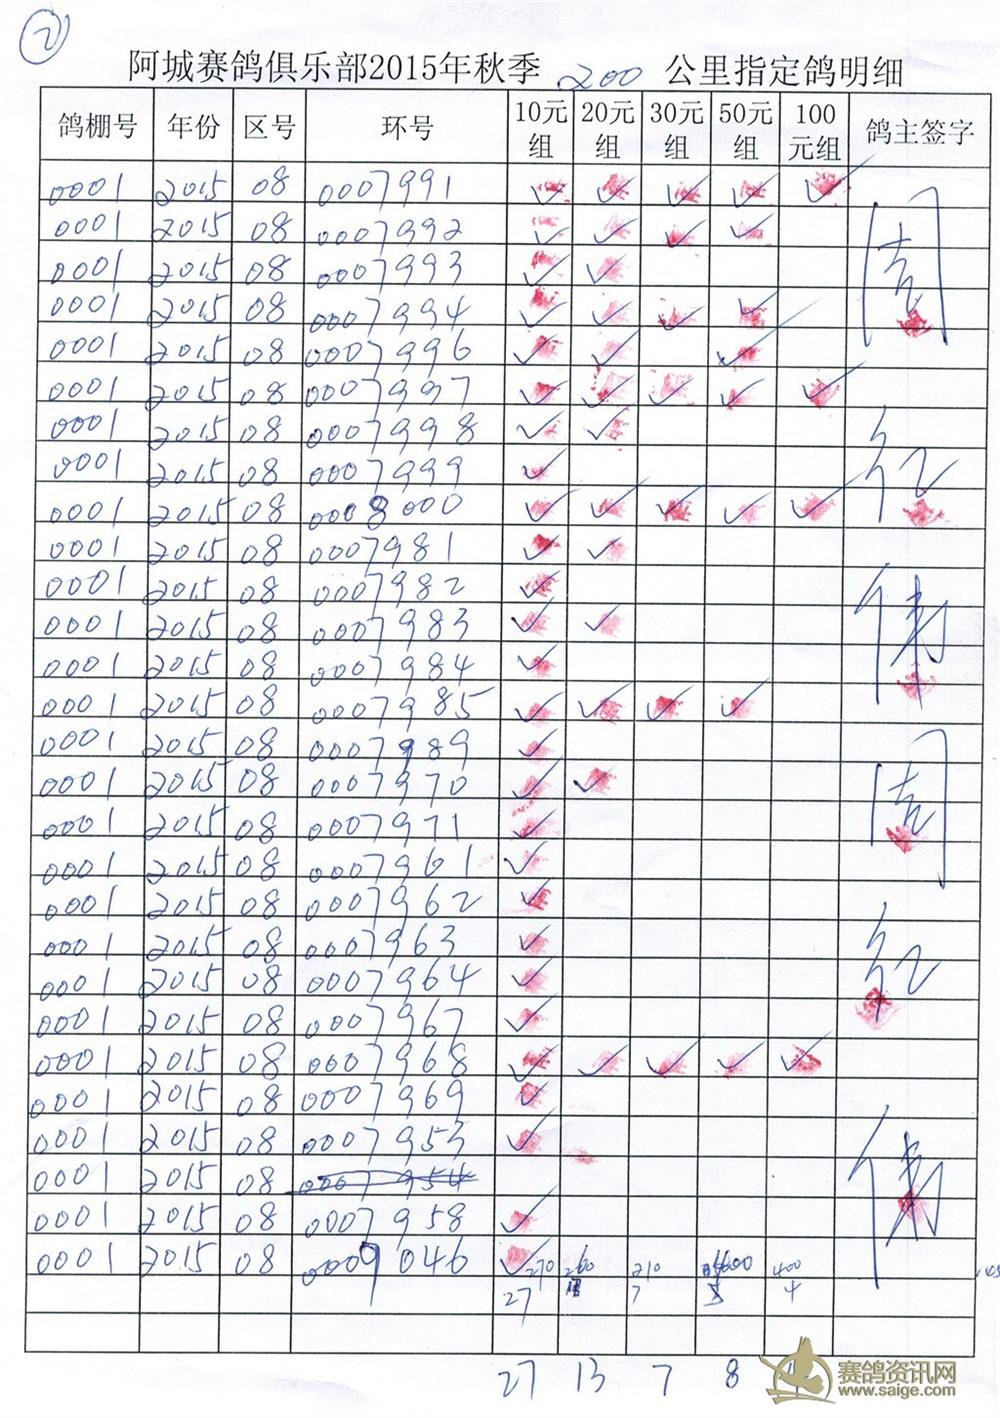 ②
阿城赛鸽俱乐部2015年秋季 200 公里指定鸽明细
鸽棚号 年份 区号 环号 10元组 20元组 30元组 50元组 100元组 鸽主签字
0001 2015 08 0007991 ✓ ✓ ✓ ✓ ✓
0001 2015 08 0007992 ✓ ✓ ✓ ✓
0001 2015 08 0007993 ✓ ✓
0001 2015 08 0007994 ✓ ✓ ✓ ✓
0001 2015 08 0007996 ✓ ✓ ✓
0001 2015 08 0007997 ✓ ✓ ✓ ✓ ✓
0001 2015 08 0007998 ✓ ✓
0001 2015 08 0007999 ✓
0001 2015 08 0008000 ✓ ✓ ✓ ✓ ✓
0001 2015 08 0007981 ✓ ✓
0001 2015 08 0007982 ✓
0001 2015 08 0007983 ✓ ✓
0001 2015 08 0007984 ✓
0001 2015 08 0007985 ✓ ✓ ✓ ✓
0001 2015 08 0007989 ✓
0001 2015 08 0007970 ✓ ✓
0001 2015 08 0007971 ✓
0001 2015 08 0007961 ✓
0001 2015 08 0007962 ✓
0001 2015 08 0007963 ✓
0001 2015 08 0007964 ✓
0001 2015 08 0007967 ✓
0001 2015 08 0007968 ✓ ✓ ✓ ✓ ✓
0001 2015 08 0007969 ✓
0001 2015 08 0007953 ✓
0001 2015 08 0007954
0001 2015 08 0007958 ✓
0001 2015 08 0009046 ✓
周红伟
周红伟
270 260 210 400
27 7 4
27 13 7 8 4
赛鸽资讯网
www.saige.com